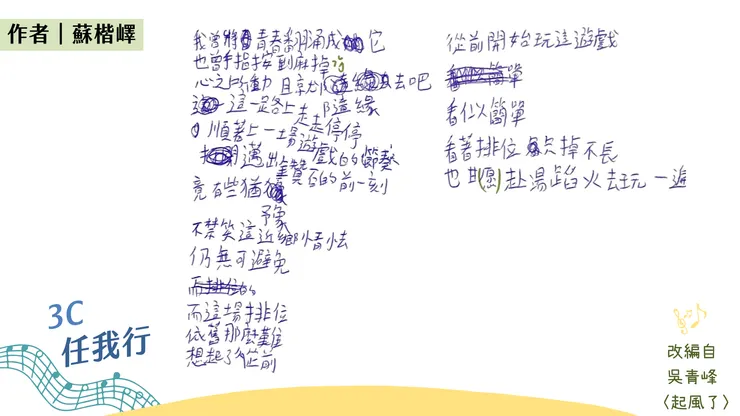 作者｜蘇楷嶧
我曾將青春翻涌成它
也曾手指按到麻掉
心之所動 且就隨緣去吧
這一路上走走停停
順著上一場遊戲的節奏
邁出 的前一刻
竟有些猶豫
不禁笑這近鄉情怯
仍無可避免
而這場排位
依舊那麼難
想起了從前
從前開始玩這遊戲
看似簡單
看著排位 掉不長
也甘願赴湯蹈火去玩一遍
3C
任我行
改編自
吳青峰
〈起風了〉